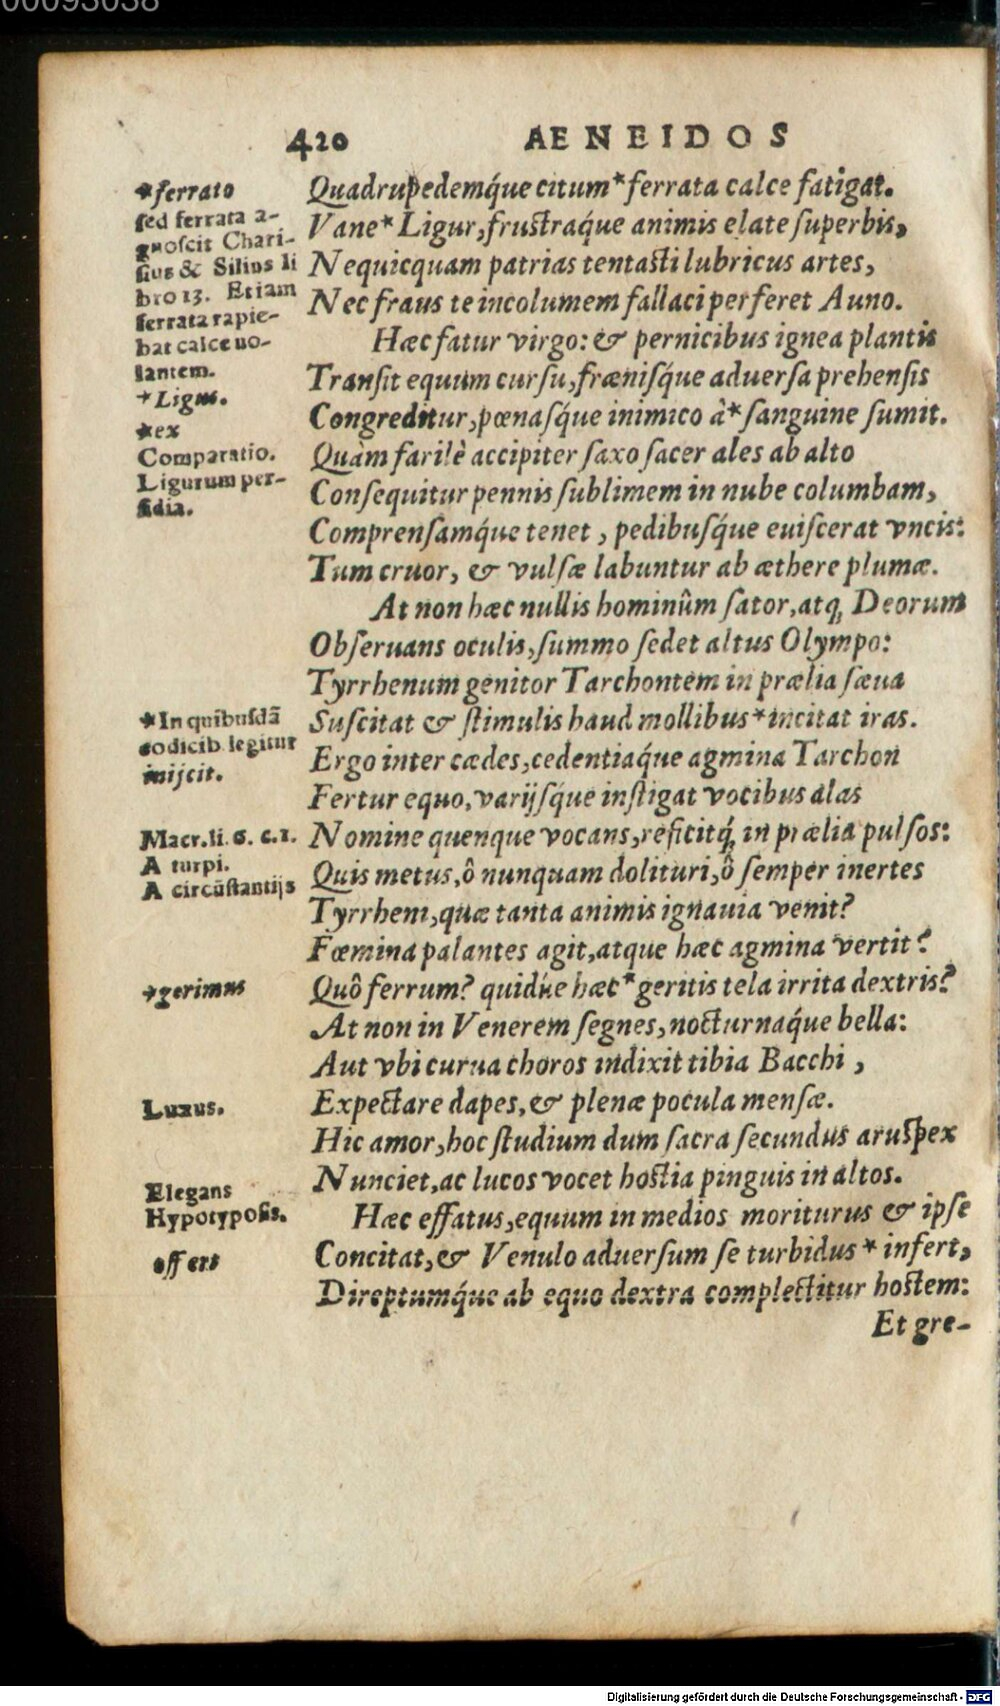 00093038
420 AENEIDOS
*ferrato
sed ferrata a-
gnoscit Chari-
sius & Silius li
bro 13. Etiam
ferrata rapie-
bat calce uo-
lantem.
*Ligus.
*ex
Comparatio.
Ligurum per-
fidia.
Quadrupedemq́ue citum*ferrata calce fatigat.
Vane* Ligur,frustraq́ue animis elate superbis,
Nequicquam patrias tentasti lubricus artes,
Nec fraus te incolumem fallaci perferet Auno.
Hæc fatur virgo: & pernicibus ignea plantis
Transit equum cursu,frænisq́ue aduersa prehensis
Congreditur,pœnasq́ue inimico à*sanguine sumit.
Quàm facilè accipiter saxo sacer ales ab alto
Consequitur pennis sublimem in nube columbam,
Comprensamq́ue tenet, pedibusq́ue euiscerat vncis:
Tum cruor, & vulsæ labuntur ab æthere plumæ.
At non hæc nullis hominûm sator,atq; Deorum
Obseruans oculis,summo sedet altus Olympo:
Tyrrhenum genitor Tarchontem in prælia sæua
*In quibusdã
codicib. legitur
inijcit.
Suscitat & stimulis haud mollibus*incitat iras.
Ergo inter cædes,cedentiaq́ue agmina Tarchon
Fertur equo,varijsq́ue instigat vocibus alas
Macr.li. 6. c.1.
A turpi.
A circũstantijs
Nomine quenque vocans,reficitq́; in prælia pulsos:
Quis metus,ô nunquam dolituri,ô semper inertes
Tyrrheni,quæ tanta animis ignauia venit?
Fœmina palantes agit,atque hæc agmina vertit?
*gerimus
Quô ferrum? quidúe hæc*geritis tela irrita dextris?
At non in Venerem segnes,nocturnaq́ue bella:
Aut vbi curua choros indixit tibia Bacchi,
Luxus.
Expectare dapes,& plenæ pocula mensæ.
Hic amor,hoc studium dum sacra secundus aruspex
Nunciet,ac lucos vocet hostia pinguis in altos.
Elegans
Hypotyposis.
Hæc effatus,equum in medios moriturus & ipse
offert
Concitat,& Venulo aduersum se turbidus* infert,
Direptumq́ue ab equo dextra complectitur hostem:
Et gre-
Digitalisierung gefördert durch die Deutsche Forschungsgemeinschaft - DFG